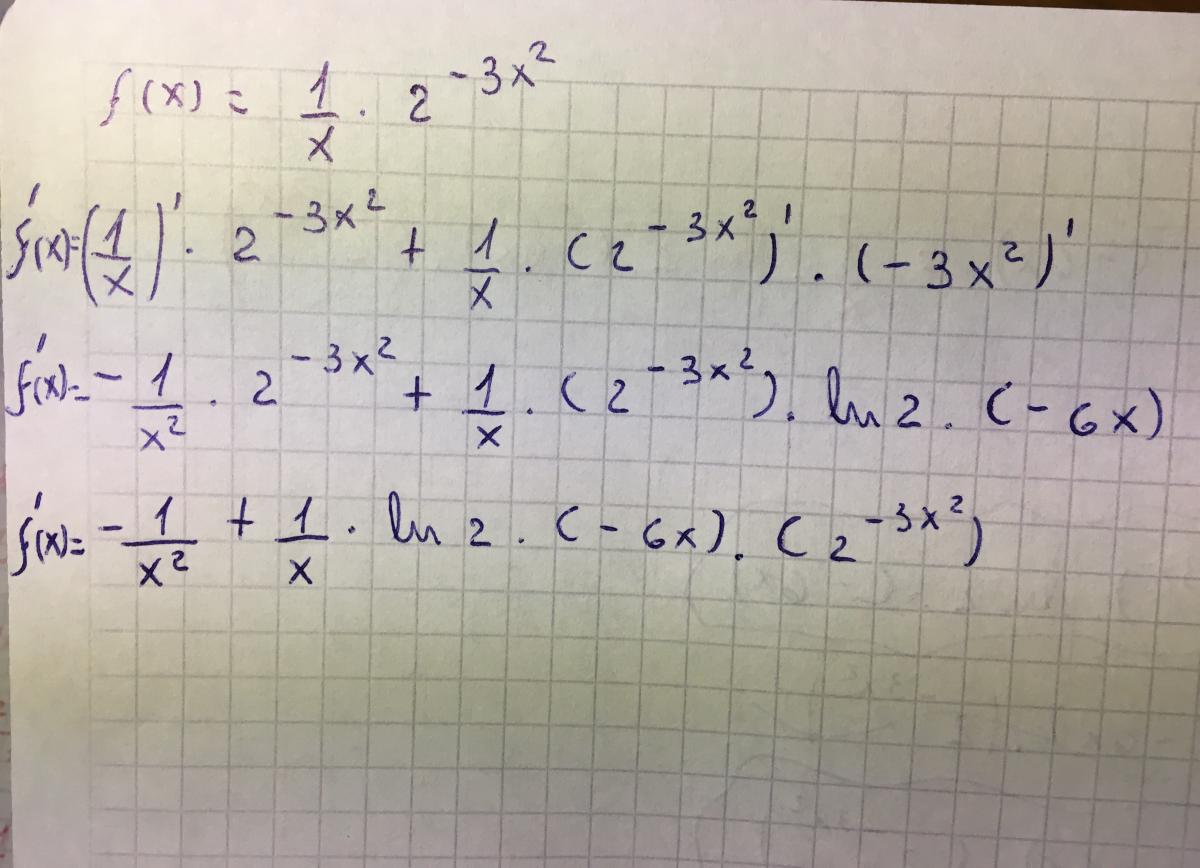 f(x) = 1/x · 2^(-3x²)
f'(x) = (1/x)' · 2^(-3x²) + 1/x · (2^(-3x²))' · (-3x²)'
f'(x) = - 1/x² · 2^(-3x²) + 1/x · (2^(-3x²)) · ln 2 · (-6x)
f'(x) = - 1/x² + 1/x · ln 2 · (-6x) · (2^(-3x²))